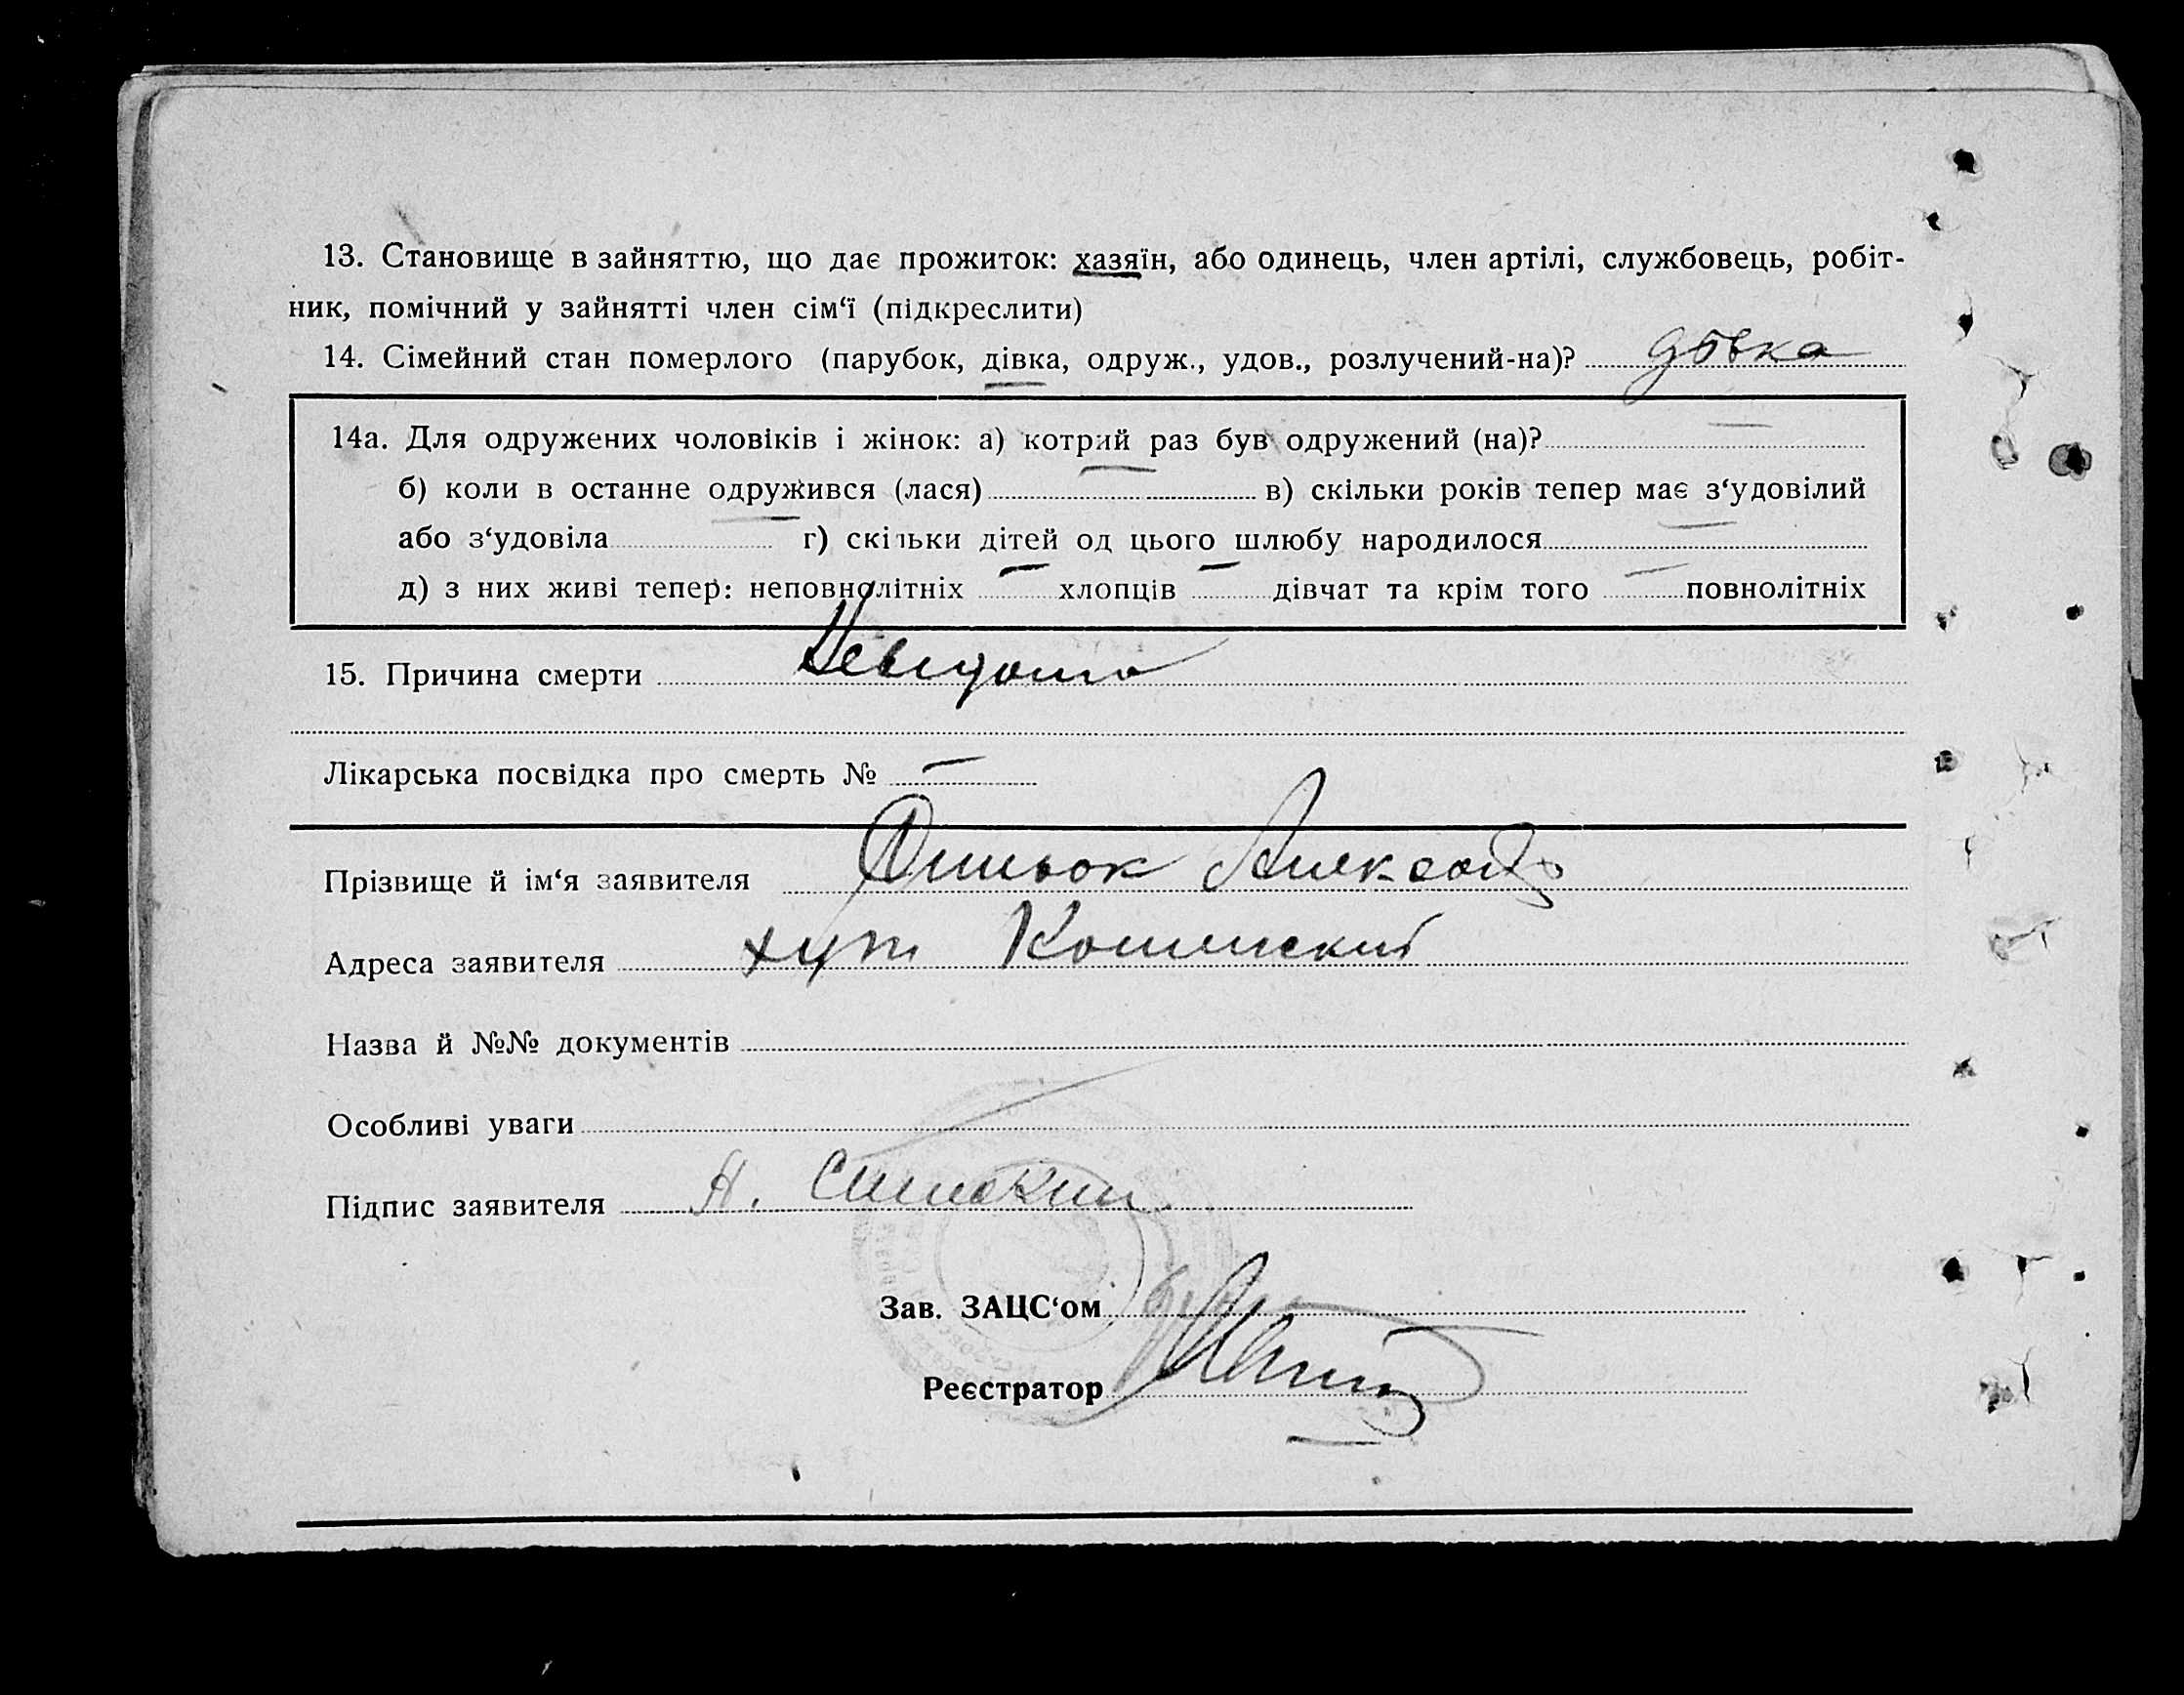 13. Становище в зайняттю, що дає прожиток: хазяїн, або одинець, член артілі, службовець, робіт-
ник, помічний у зайнятті член сім‘ї (підкреслити)
14. Сімейний стан померлого (парубок, дівка, одруж., удов., розлучений-на)? дівка
14а. Для одружених чоловіків і жінок: а) котрий раз був одружений (на)? —
б) коли в останнє одружився (лася) — в) скільки років тепер має з‘удовілий
або з‘удовіла — г) скільки дітей од цього шлюбу народилося —
д) з них живі тепер: неповнолітніх — хлопців — дівчат та крім того — повнолітніх
15. Причина смерти Невидома
Лікарська посвідка про смерть № —
Прізвище й ім‘я заявителя
Адреса заявителя хут
Назва й №№ документів
Особливі уваги
Підпис заявителя А.
Зав. ЗАЦС‘ом
Реєстратор